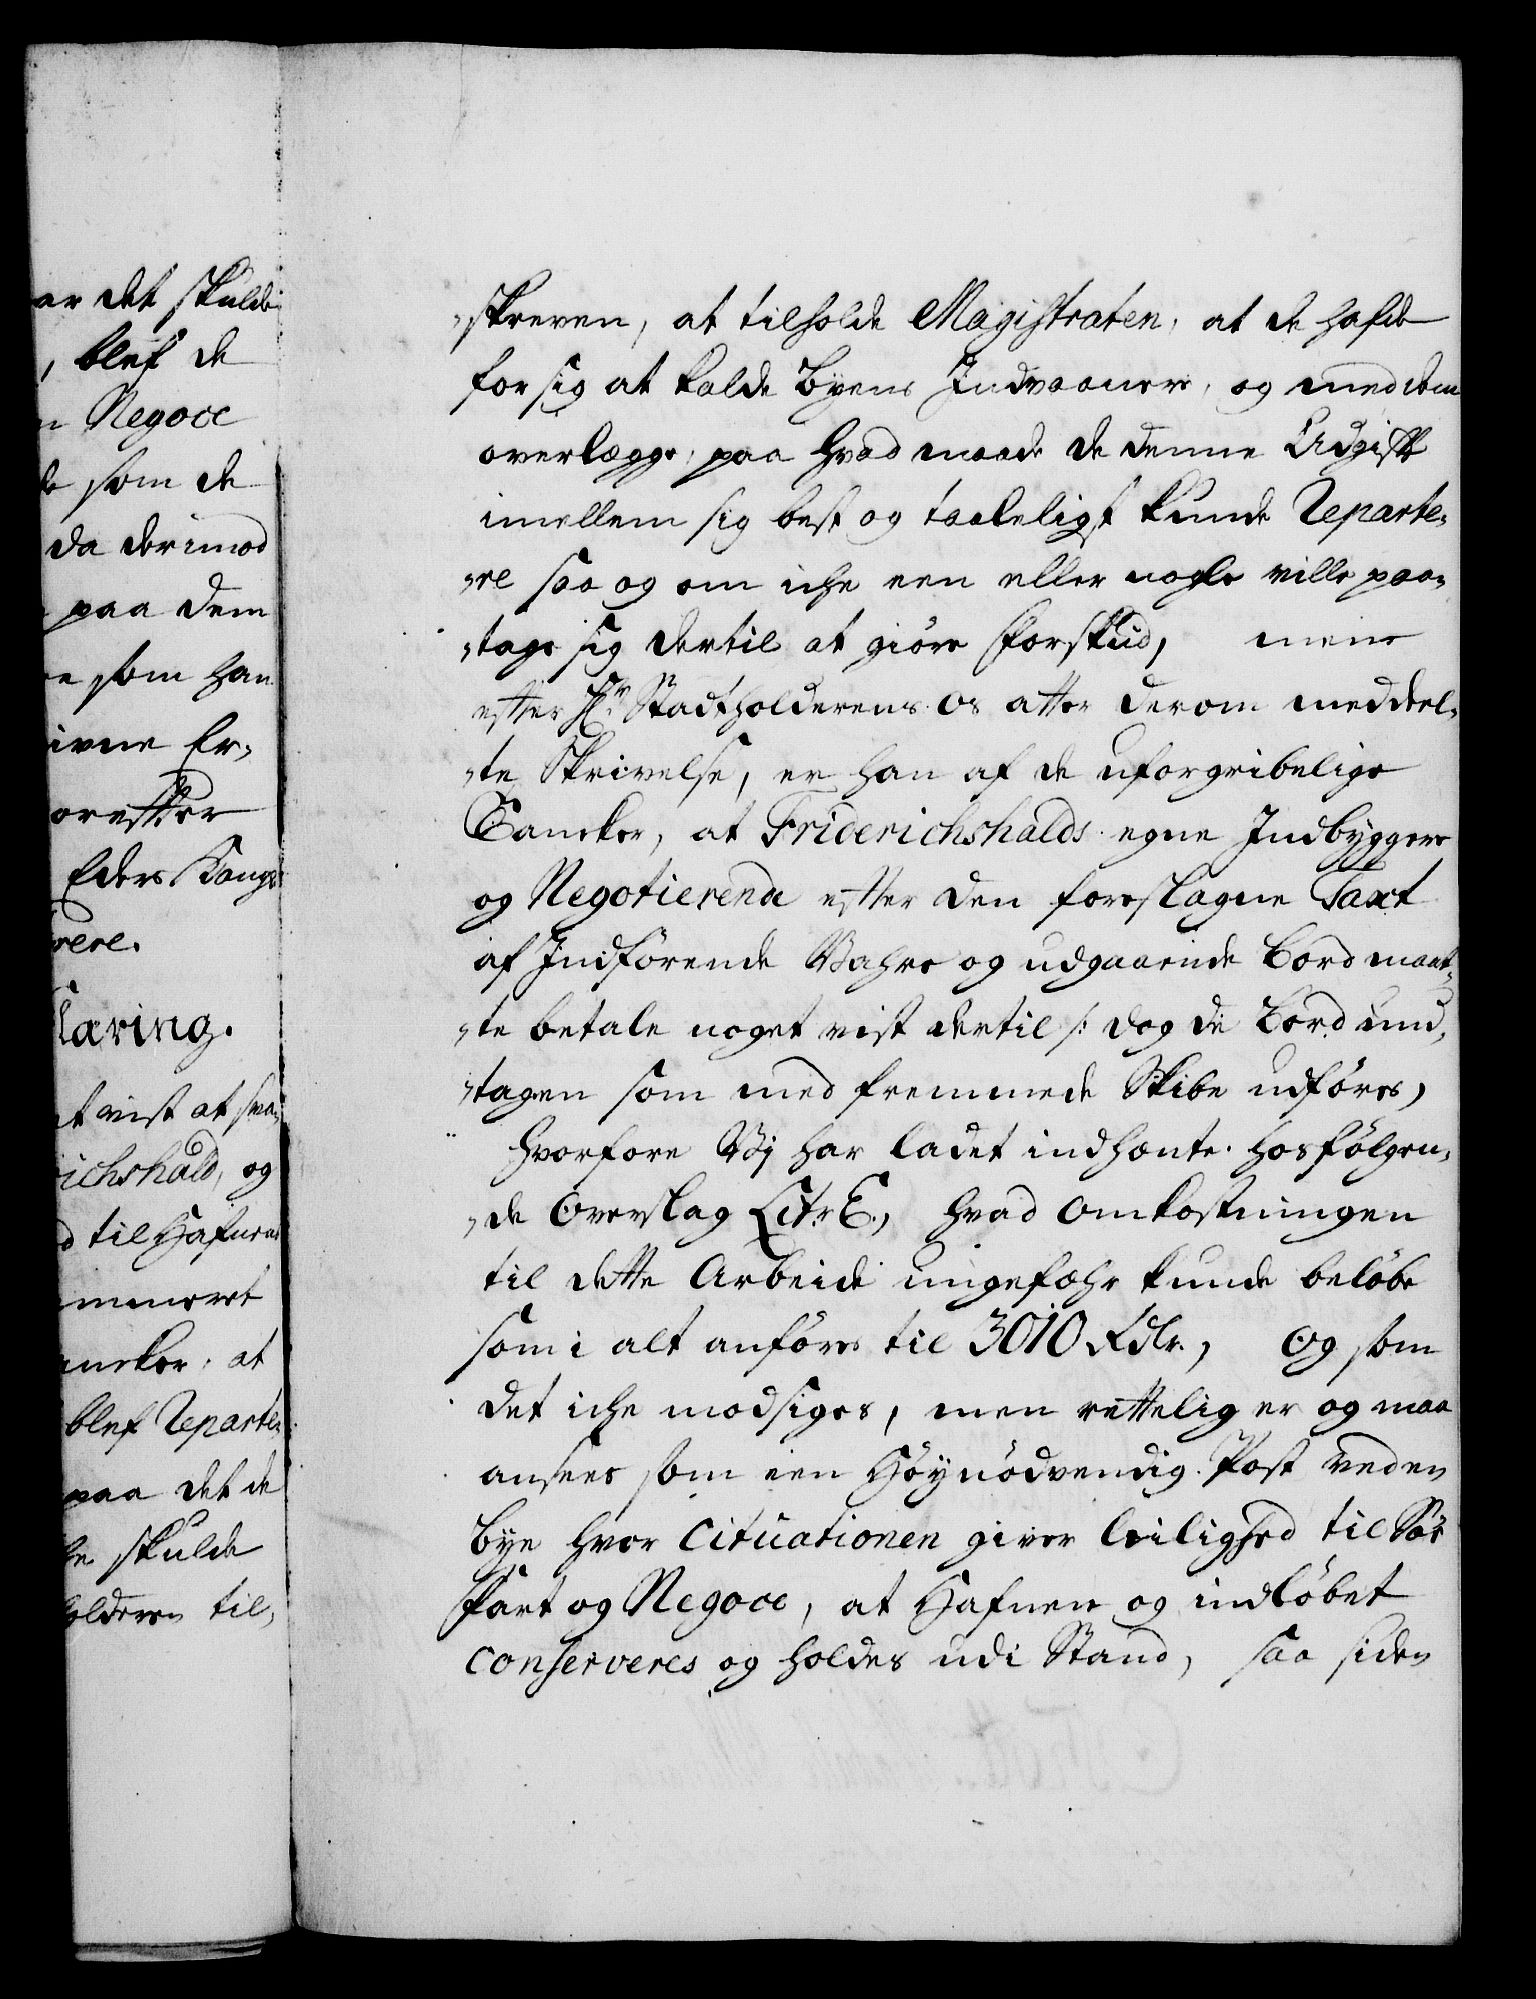 ar det skulde
, blef de
n Negoce
de som de
da derimod
paa dem
re som han
ivne Er-
orefter
Eders Kongl:
rere.
laring.
t vist at sva-
ichshald, og
d til Hafnens
mmeret
ancker, at
blef Reparte-
paa det de
he skulde
holderen til-
-skreven, at tilholde Magistraten, at de hafde
for sig at kalde Byens Indvaanere, og med dem
overlægge, paa hvad maade de denne Udgift
imellem sig best og taaleligst kunde Reparte-
-re saa og om iche een eller nogle ville paa-
-tage sig dertil at giöre Forskud, mens
efter Hr. Stadtholderens os atter derom meddeel-
-te Skrivelse, er han af de uforgribelige
Tancker, at Friderichshalds egne Indbyggere
og Negotierende efter den foreslagne Taxt
af Indförende Vahre og udgaaende Bord maat-
-te betale noget vist dertil /: dog de Bord und-
-tagen som med fremmede Skibe udföres,
hvorfore Vj har ladet indhente hosfölgen-
-de Overslag Litr. E., hvad Omkostningen
til dette Arbeide ungefæhr kunde belöbe
som i alt anföres til 3010 Rdlr., Og som
det iche modsiges, men rettelig er og maa
ansees som een Höynödvendig Post ved en
Bye hvor Cituationen giver leilighed til Söe
Fart og Negoce, at Hafnen og indlöbet
Conserveres og holdes udi Stand, saa siden